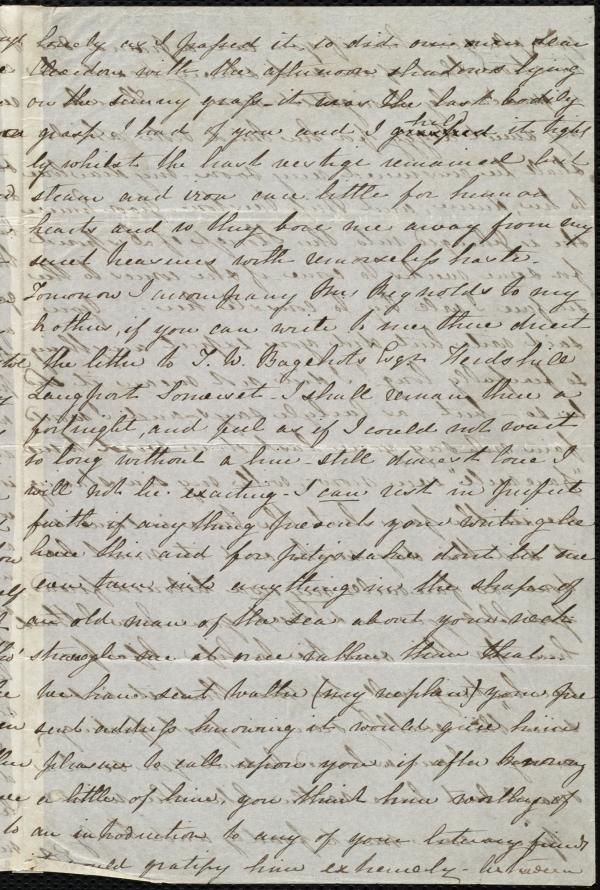 lonely as I passed it so did one man dear
Clevedon with the afternoon shadows lying
on the sunny grass - it was the last bodily
grasp I had of you and I held it tight
ly whilst the last vestige remained but
steam and iron care little for human
hearts and so they bore me away from my
sweet treasures with remorseless haste -
Tomorrow I accompany Mrs Reynolds to my
brothers, if you can write to me there direct
the letter to T. W. Bagehots Esqr Herds hill
Langport Somerset - I shall remain there a
fortnight, and feel as if I could not wait
so long without a line - still dearest love I
will not be exacting - I can rest in perfect
faith if any thing prevents your writing be
lieve this and for pity's sake dont let me
ever turn into anything in the shape of
an old man of the sea about your neck
strangle me at once rather than that -
We have sent Walter (my nephew) your pre
sent address knowing it would give him
pleasure to call upon you if after knowing
a little of him you think him worthy of
an introduction to any of your literary friends
it would gratify him extremely -